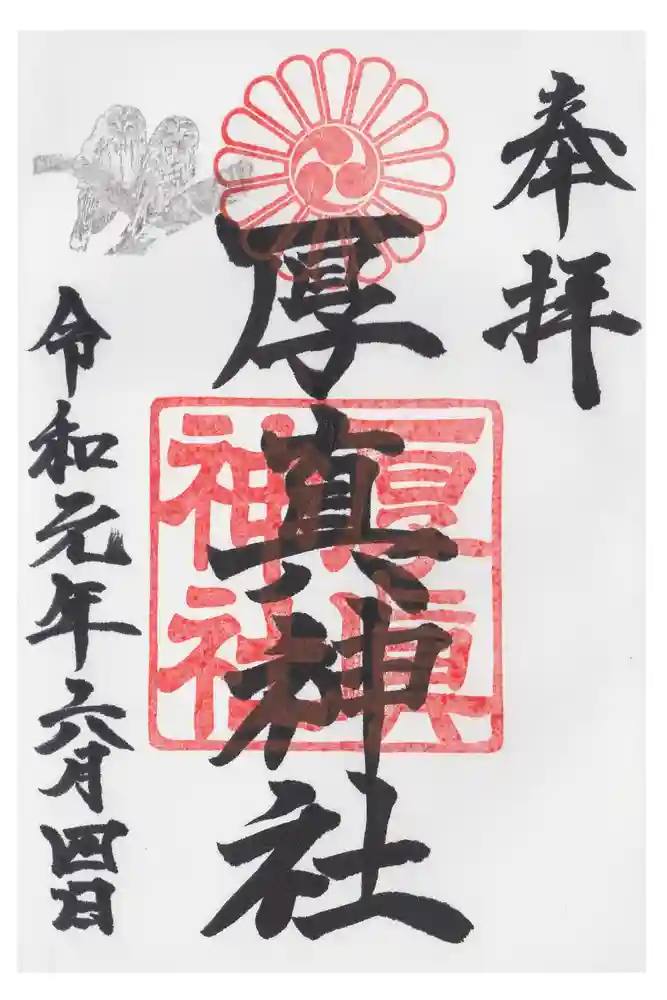 奉拝
厚真神社
厚真
神社
令和元年六月四日